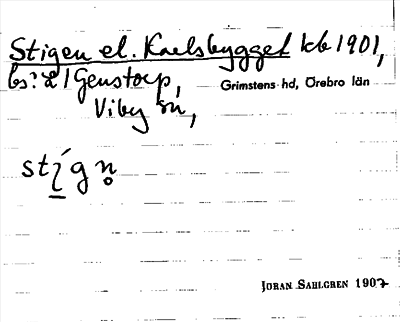 Stigen el. Karlsbygget kb 1901,
bs? L / Genstorp,
Grimstens hd, Örebro län
Viby sn,
stígn̥
JÖRAN SAHLGREN 1907